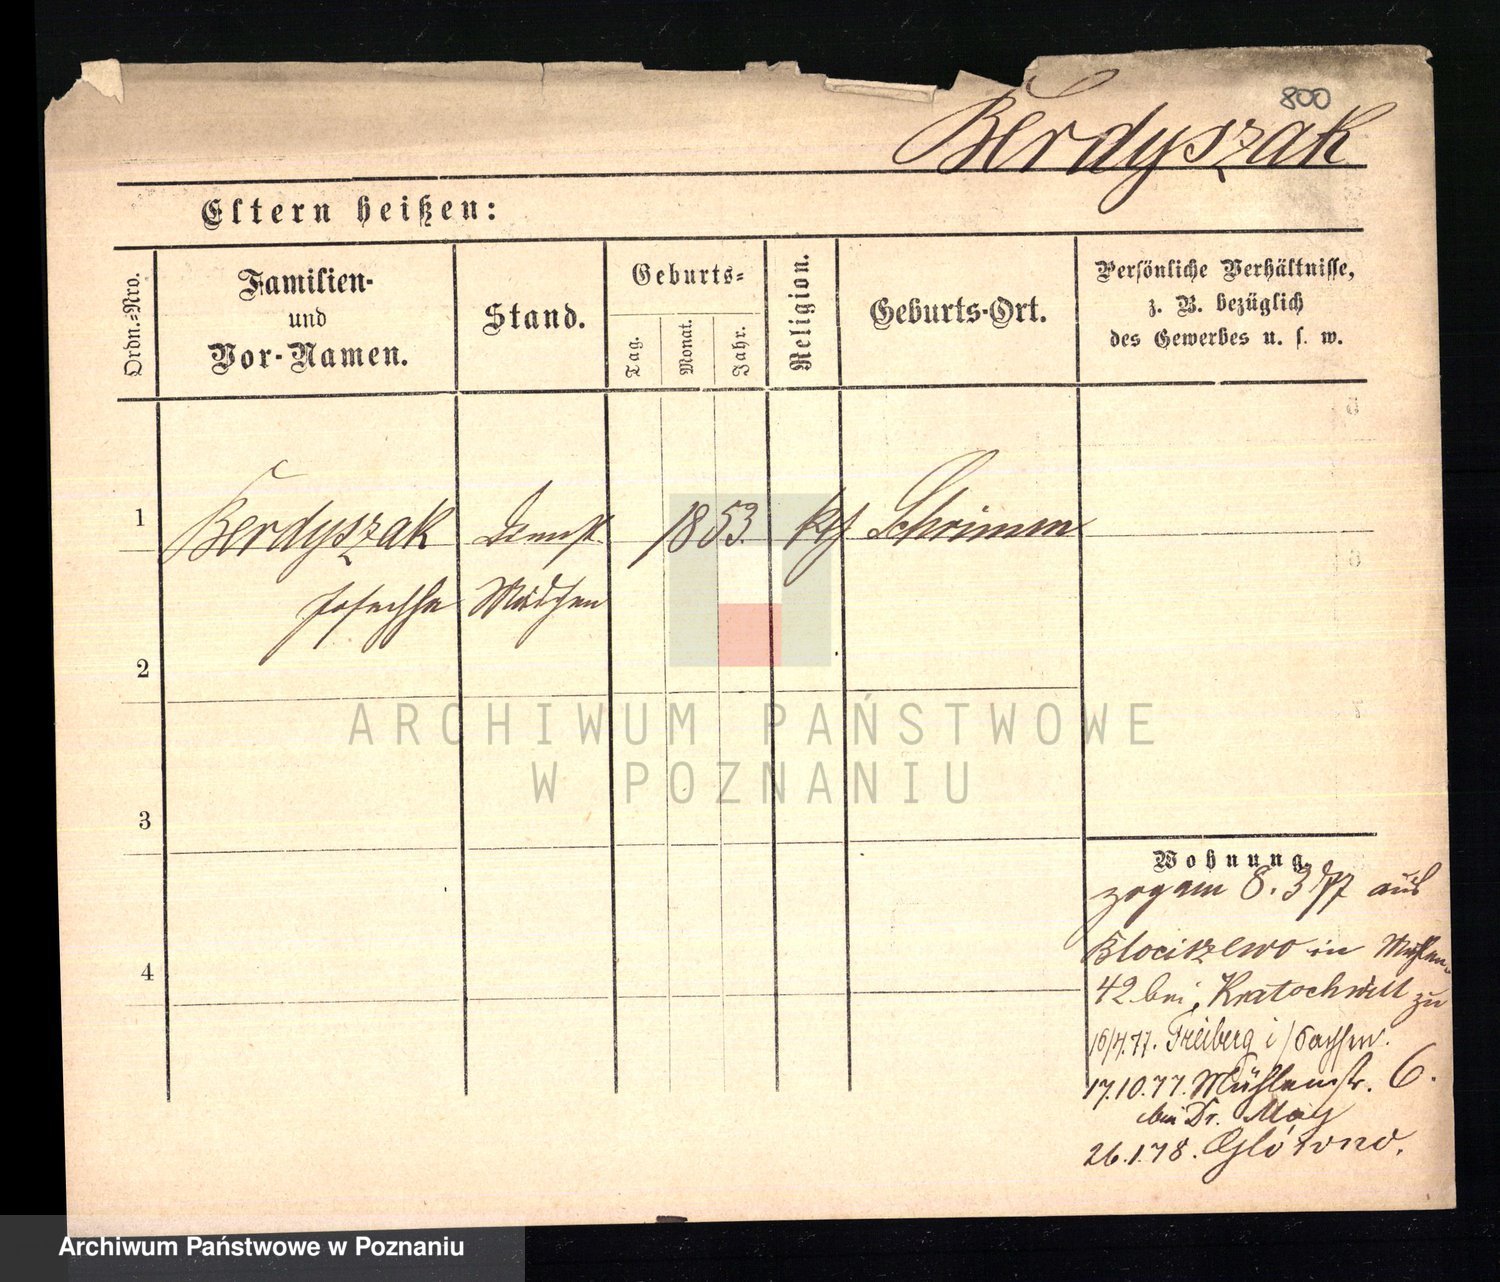 800
Berdyszak
Eltern heißen:
Ordn.-Nro.
Familien-
und
Vor-Namen.
Stand.
Geburts-
Tag.
Monat.
Jahr.
Religion.
Geburts-Ort.
Persönliche Verhältnisse,
z. B. bezüglich
des Gewerbes u. s. w.
1
Berdyszak Dienst 1853. kth Schrimm
Josepha Mädchen
2
ARCHIWUM PAŃSTWOWE
W POZNANIU
3
Wohnung
zog am 8.3.77 aus
Klociszewo in Mühlen-
42 bei Kratochwill zu
16/4.77. Freiberg i/Sachsen.
17.10.77. Mühlenstr. 6.
bei Dr. May
4
26.1.78. Główno.
Archiwum Państwowe w Poznaniu